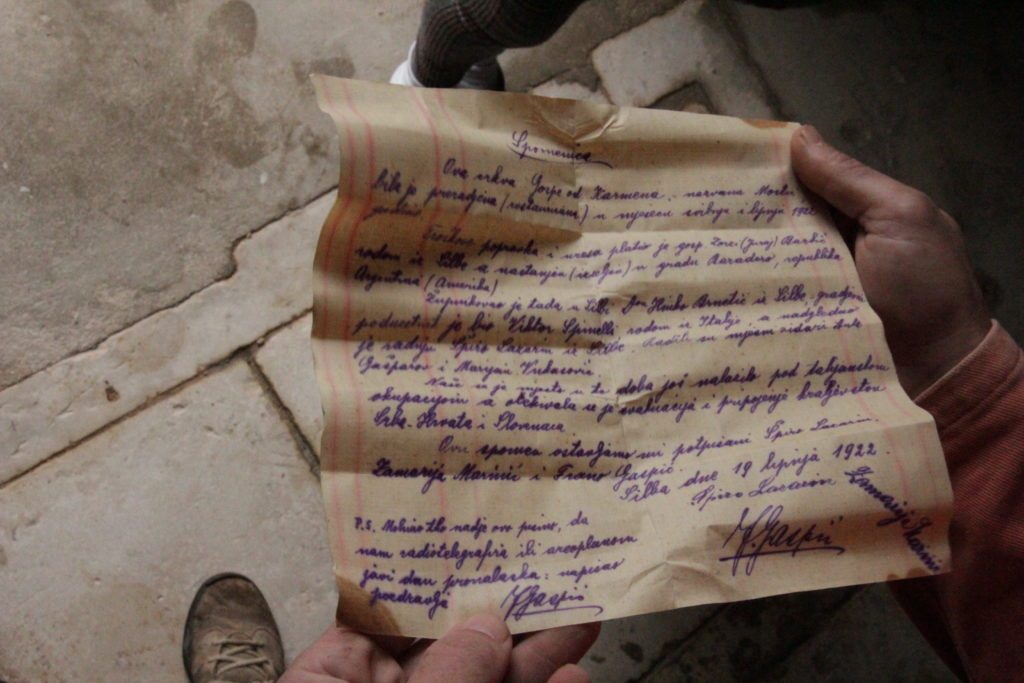 Spomenica
Ova crkva Gospe od Karmena, nazvana
bila je preradjena (restaurirana) u mjesecu svibnju i lipnju 1922
godine.
Troškove popravka i uresa platio je gosp. Zorzi (Juraj)
rodom iz Silbe a nastanjen u gradu Baradero, republika
Argentina (Amerika)
Župnikovao je tada u Silbi don Hinko iz Silbe, gradjevni
poduzetnik je bio Viktor Spinelli rodom iz Italije a nadgledao
je radnju Špiro Lazarin iz Silbe. Radili su mjesni zidari Ante
Gašparov i Marijan Vukasović
Naše je mjesto u to doba još nalazilo pod talijanskom
okupacijom a očekivala se je evakuacija i pripojenje kraljevstvu
Srba-Hrvata i Slovenaca
Ovu spomen ostavljamo mi potpisani Špiro Lazarin,
Zamarija Marinić i Frane Gaspić.
Silba dne 19 lipnja 1922.
Spiro Lazarin
Zamarija Marinić
F. Gaspić
P.S. Molimo tko nadje ovo pismo, da
nam radiotelegrafira ili areoplanom
javi dan pronalaska: napisao
pozdravlja
F Gaspić